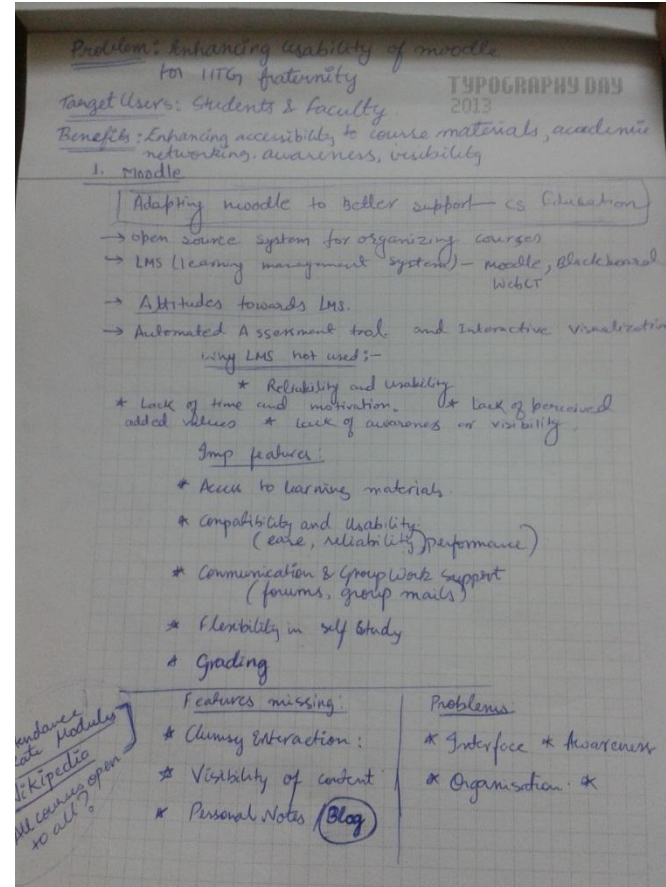 Problem: Enhancing usability of moodle
for IITG fraternity
TYPOGRAPHY DAY
2013
Target Users: Students & Faculty.
Benefits: Enhancing accessibility to course materials, academic
networking, awareness, visibility
1. Moodle
Adapting moodle to better support CS Education
→ open source system for organizing courses
→ LMS (learning management system) - Moodle, Blackboard
WebCT
→ Attitudes towards LMS.
→ Automated Assessment tool and Interactive Visualization
Why LMS not used :-
* Reliability and usability
* Lack of time and motivation. * Lack of perceived
added values * Lack of awareness or visibility.
Imp features:
* Access to learning materials.
* Compatibility and Usability
(ease, reliability, performance)
* Communication & Group Work Support
(forums, group mails)
* Flexibility in self study
* Grading
Features missing:
* Clumsy Interaction:
* Visibility of content
* Personal Notes / Blog
Problems
* Interface * Awareness
* Organisation. *
Module
Wikipedia
All courses open
to all?